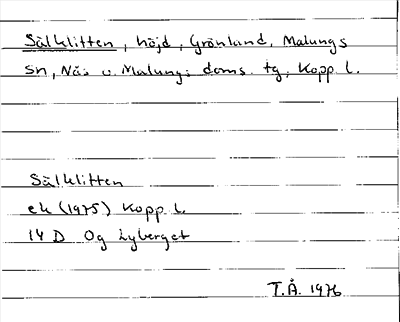 Sälklitten, höjd, Grönland, Malungs
sn, Näs o. Malungs doms. tg, Kopp. l.
Sälklitten
ek (1975) Kopp. l.
14 D Og Lyberget
T.Å. 1976